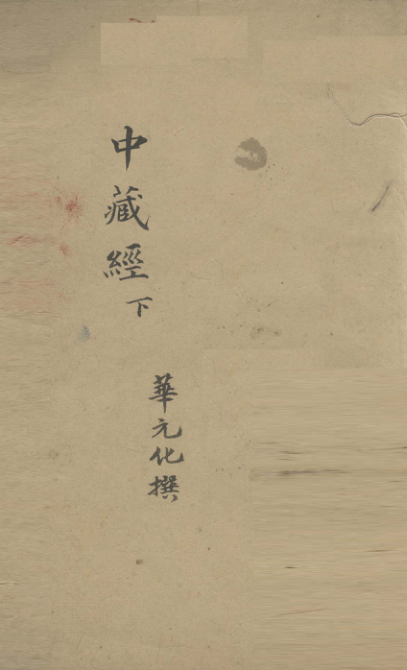 中藏經下
華元化撰